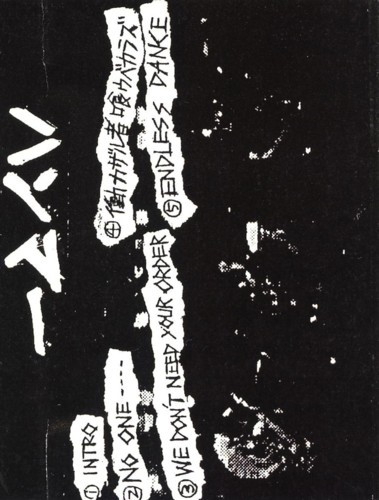 ① INTRO
② NO ONE -----
③ WE DON'T NEED YOUR ORDER
④ 働カザル者喰ウベカラズ
⑤ ENDLESS